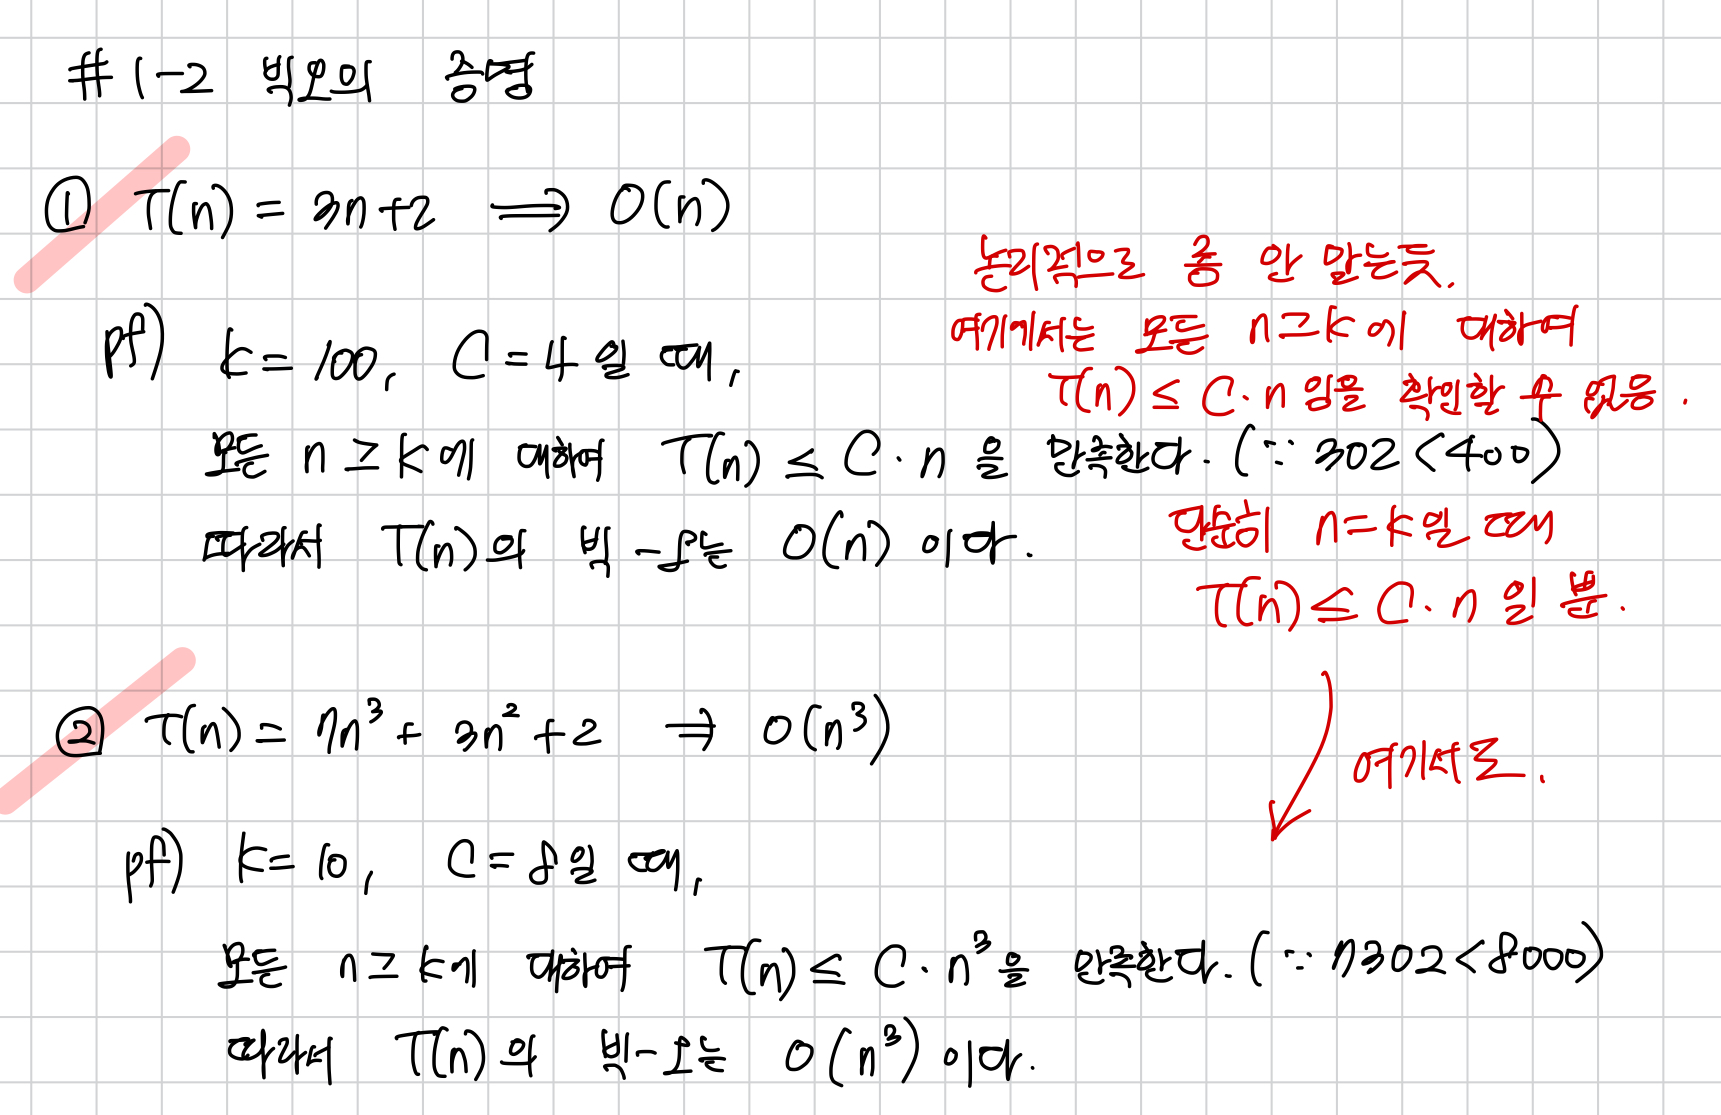 #1-2 빅오의 증명
① T(n) = 3n+2 ⟹ O(n)
논리적으로 좀 안 맞는듯.
여기에서는 모든 n≥k에 대하여
pf) k=100, C=4일 때,
T(n) ≤ C·n 임을 확인할 수 없음.
모든 n≥k에 대하여 T(n) ≤ C·n을 만족한다. (∵ 302<400)
따라서 T(n)의 빅-오는 O(n)이다.
단순히 n=k일 때
T(n) ≤ C·n 일 뿐.
② T(n) = 7n³ + 3n² + 2 ⇒ O(n³)
여기서도.
pf) k=10, C=8일 때,
모든 n≥k에 대하여 T(n) ≤ C·n³을 만족한다. (∵ 7302<8000)
따라서 T(n)의 빅-오는 O(n³)이다.